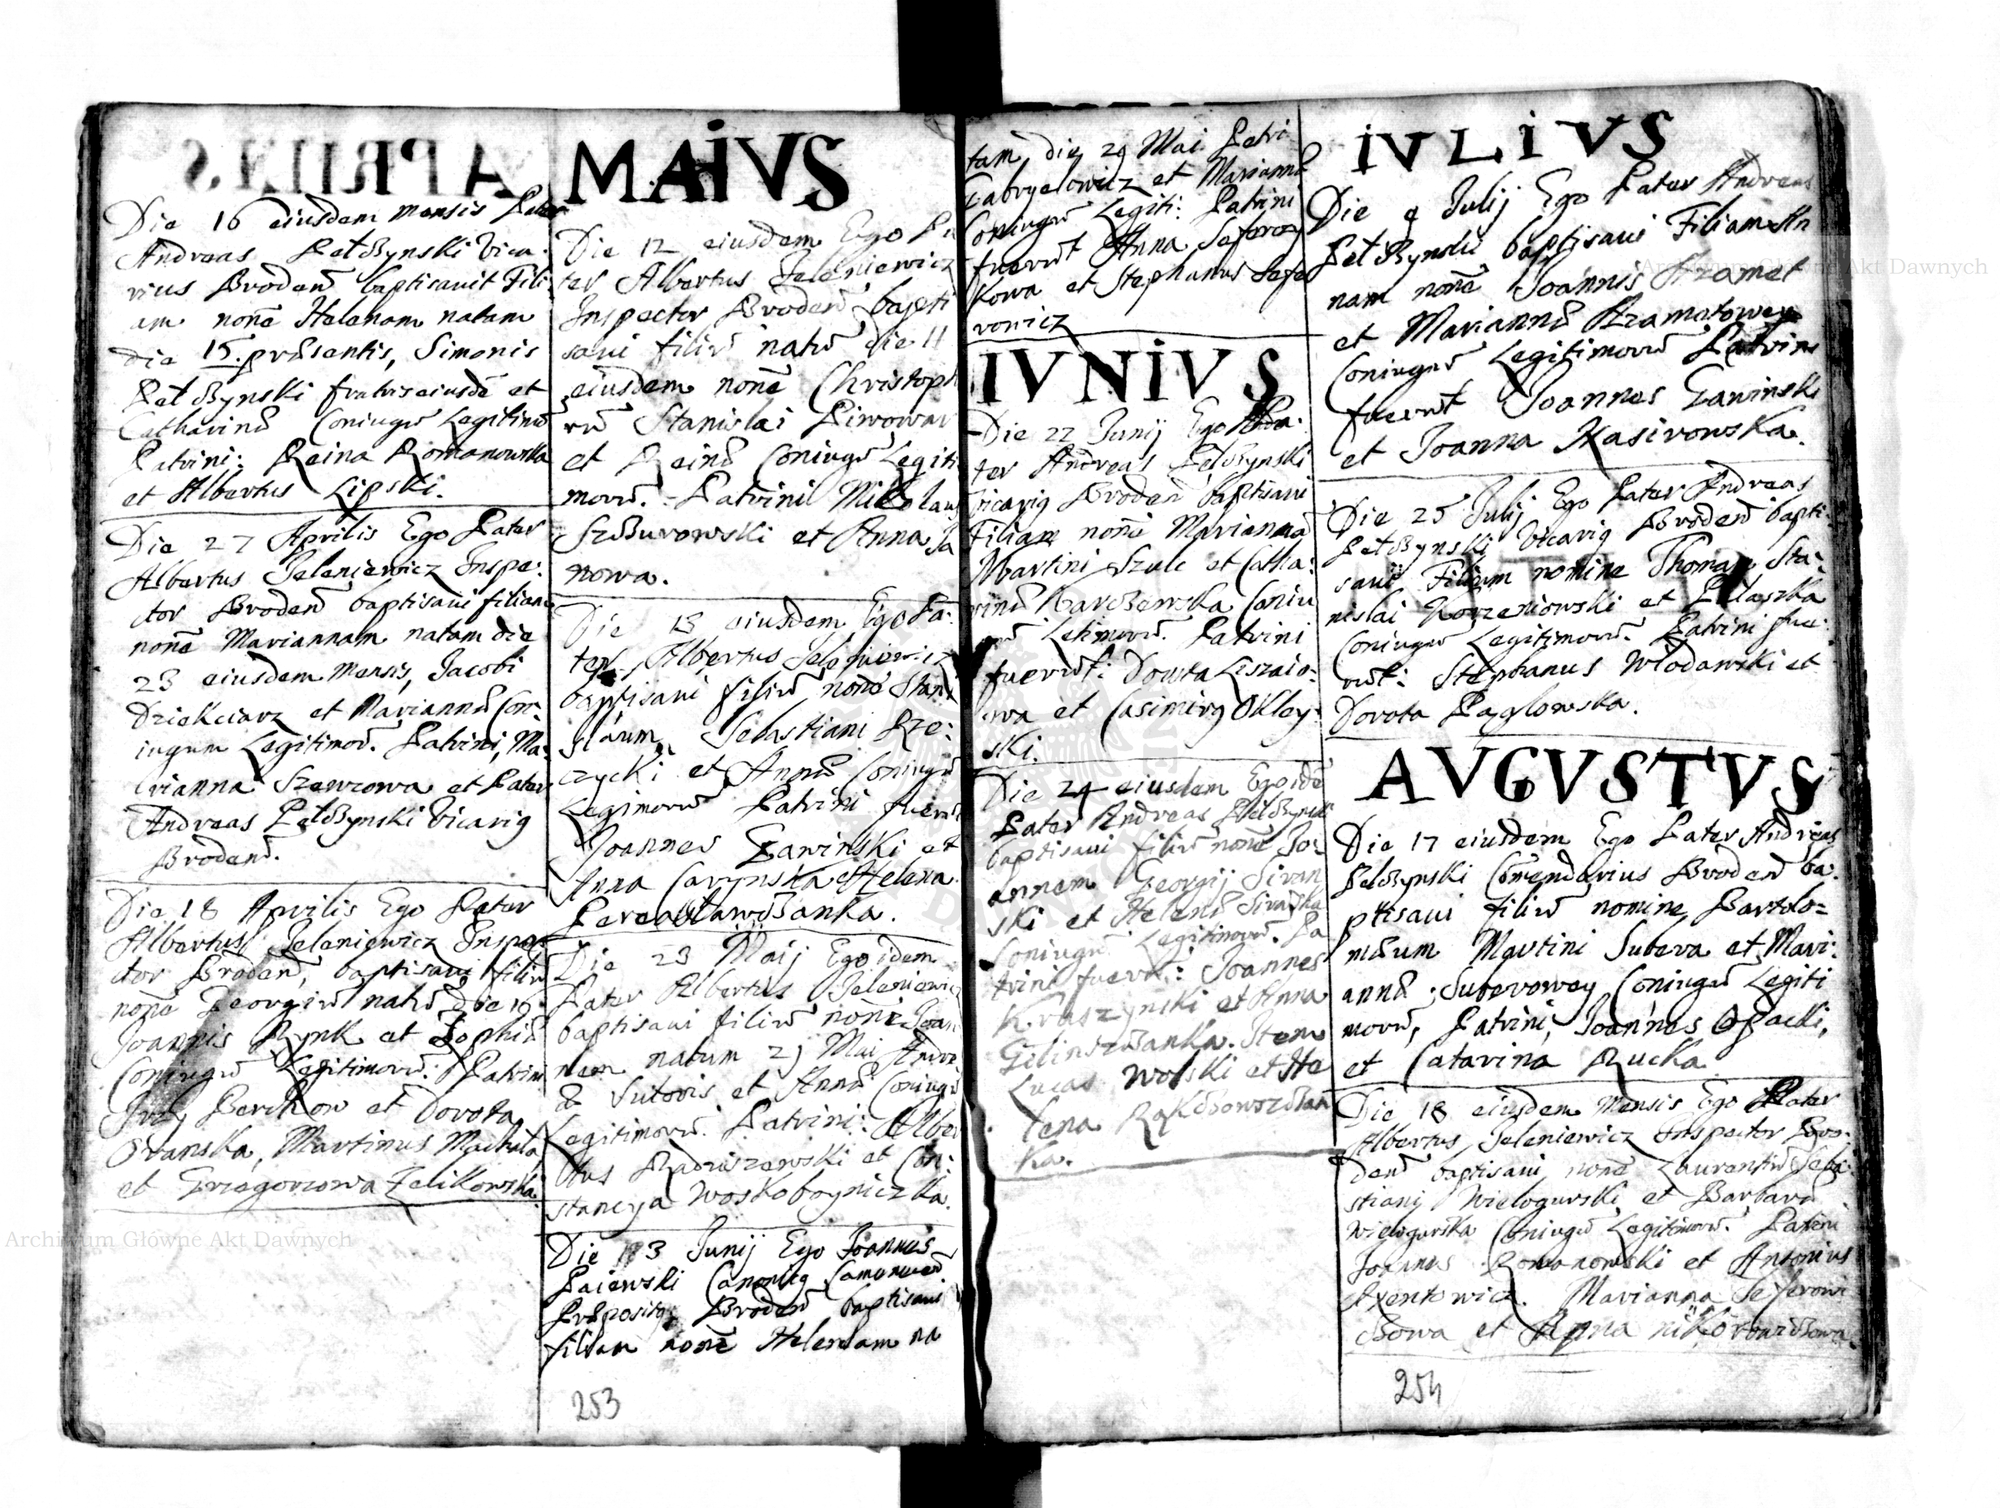 APRILIS
Die 16 eiusdem mensis Pater
Andreas Pełdzynski Vica:
rius Brodeñ baptisavit Fili
am noñe Helenam natam
Die 15. præsentis, Simonis
Pełdzynski fratris eiusdē et
Catharinæ Coniugū Legitimo
Patrini: Reina Romanowska
et Albertus Lipski.
Die 27 Aprilis Ego Pater
Albertus Jeleniewicz Inspe:
ctor Brodeñ baptisavi filiam
noñe Mariannam natam die
23 eiusdem mensis, Jacobi
Dziekciarz et Mariannæ Con:
iugum Legitimor̄. Patrini, Ma:
rianna Szewcowa et Pater
Andreas Pełdzynski Vicariꝰ
Brodeñ.
Die 18 Aprilis Ego Pater
Albertus Jeleniewicz Inspe:
ctor Brodeñ, baptisavi filiū
noñe Georgiū natū die 16
Joannis Rynk et Sophiæ
Coniugū Legitimorū. Patrini
Jrzy Berchow et Dorota
Oranska, Martinus Machula
et Grzegorzowa Zelikowska.
MAIVS
Die 12 eiusdem Ego Pa
ter Albertus Jeleniewicz
Inspector Brodeñ bapti
savi filiū natū die 11
eiusdem noñe Christoph
rū Stanislai Piwowar
et Reinæ Coniugū Legiti
morū. Patrini Mikolaus
Szdurowski et Anna Ja
nowa.
Die 13 eiusdem Ego Pa:
ter Albertus Jeleniewicz
baptisavi filiū noñe Stani
slaum Sebastiani Rze:
czycki et Annæ Coniugū
Legimorū Patrini fuerūt
Joannes Gawinski et
Anna Carynska et Helena
Pereasławdzanka.
Die 23 Maij Ego idem
Pater Albertus Jeleniewicz
baptisavi filiū noñe Joan
nem natum 21 Mai Andre
æ Sutoris et Annæ Coniugū
Legitimorū. Patrini: Alber
tus Radziszewski et Con:
stancya Woskoboyniczka.
Die 3 Junij Ego Joannes
Paiewski Canonicꝰ Camaneceñ.
Præpositꝰ Brodeñ baptisavi
filiam noñe Helenam na
253
tam die 29 Mai Petri
Gabryelowicz et Mariannæ
Coniugū Legiti: Patrini
fuerūt Anna Seferow
kowa et Stephanus Sefe
rowicz
IVNIVS
Die 22 Junij Ego Pa:
ter Andreas Pełdzynski
vicariꝰ Brodeñ baptisavi
Filiam noñe Marianna
Martini Szulc et Catha:
rinæ Karczewska Coniu
gū Letimorū. Patrini
fuerūt: Dorota Liszaio:
wa et Casimirꝰ Okloy:
ski.
Die 24 eiusdem Ego idē
Pater Andreas Pełdzynski
baptisavi filiū noñe Jo:
annem Georgij Siran
ski et Helenæ Siraska
Coniugū Legitimorū. Pa
trini fuerūt: Joannes
Kraszynski et Anna
Gilinszdanka. Item
Lucas Wolski et He
lena Rakdzowszdzan
ka.
IVLIVS
Die 9 Julij Ego Pater Andreas
Pełdzynski baptisavi Filiam An
nam noñe Joannis Kramet
et Mariannæ Kramatowey
Coniugū Legitimorū Patrini
fuerūt Joannes Gawinski
et Joanna Kasirowska.
Die 25 Julij Ego Pater Andreas
Pełdzynski Vicariꝰ Brodeñ bapti:
savi Filium nomine Thomam Sta:
nislai Korzeniowski et Pelaszka
Coniugū Legitimorū. Patrini fue:
rūt: Stephanus Włodawski et
Dorota Pąglowska.
AVGVSTVS
Die 17 eiusdem Ego Pater Andreas
Pełdzynski Com̄endarius Brodeñ ba:
ptisavi filiū nomine Bartolo:
mæum Martini Subera et Mari:
annæ Suberowey Coniugū Legiti
morū, Patrini, Joannes Opacki,
et Catarina Rucka
Die 18 eiusdem mensis Ego Pater
Albertus Jeleniewicz Inspector Bro:
deñ baptisavi noñe Laurentiū Seba:
stiani Wielogurski et Barbaræ
Wielogurska Coniugū Legitimorū. Patrini
Joannes Romanowski et Antonius
Axentowicz. Marianna Seferowi
czowa et Anna
254
Archiwum Główne Akt Dawnych
Archiwum Główne Akt Dawnych